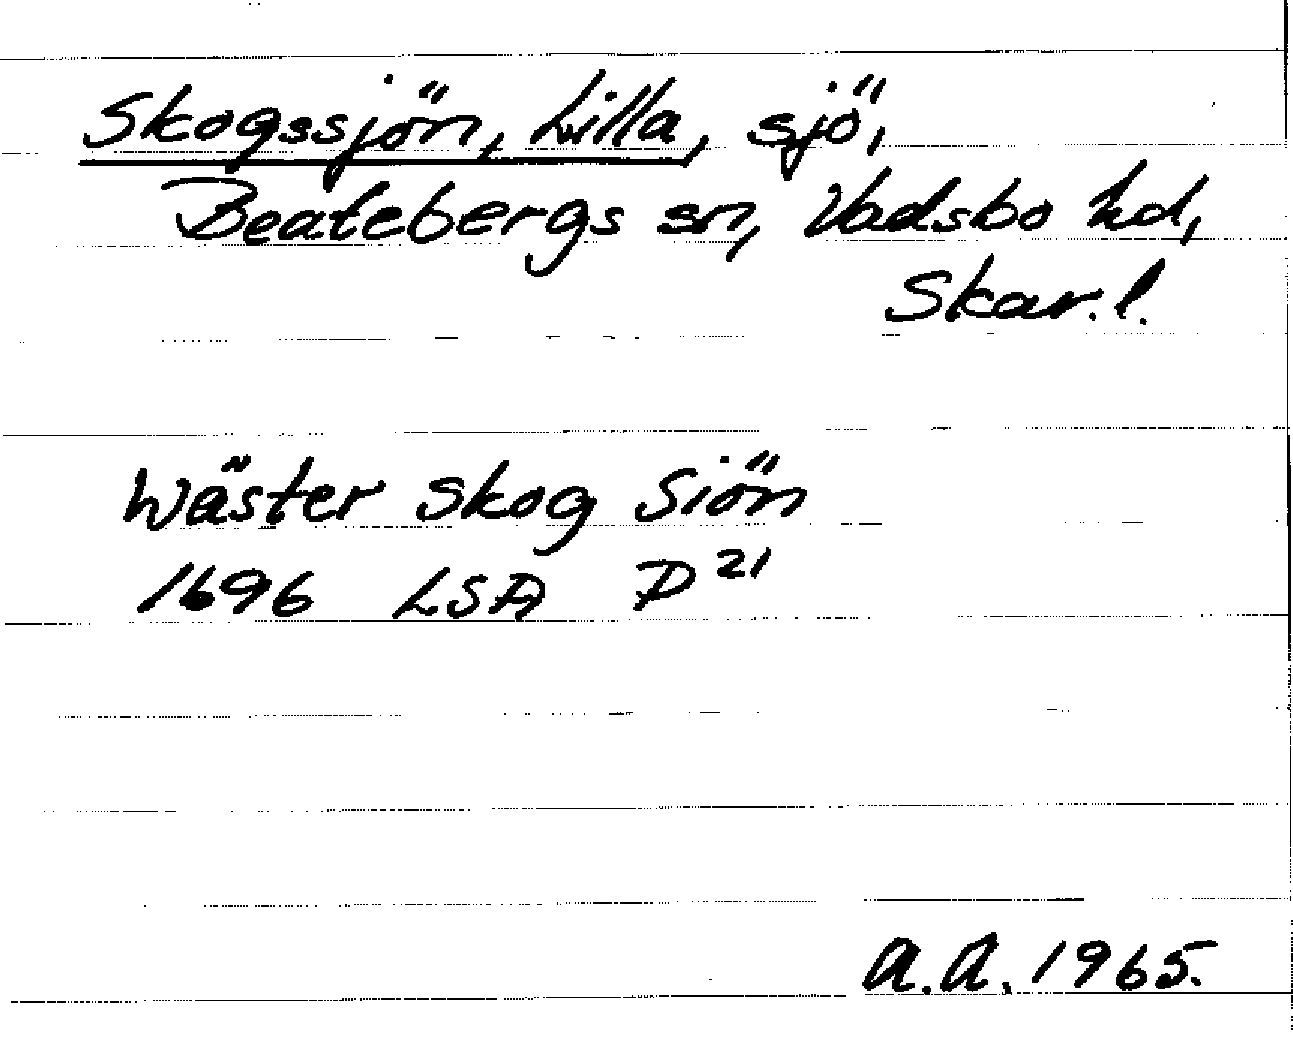 Skogssjön, Lilla, sjö,
Beatebergs sn, Vadsbo hd,
Skar. l.
Wäster Skog Siön
1696 LSA P 21
A.A. 1965.